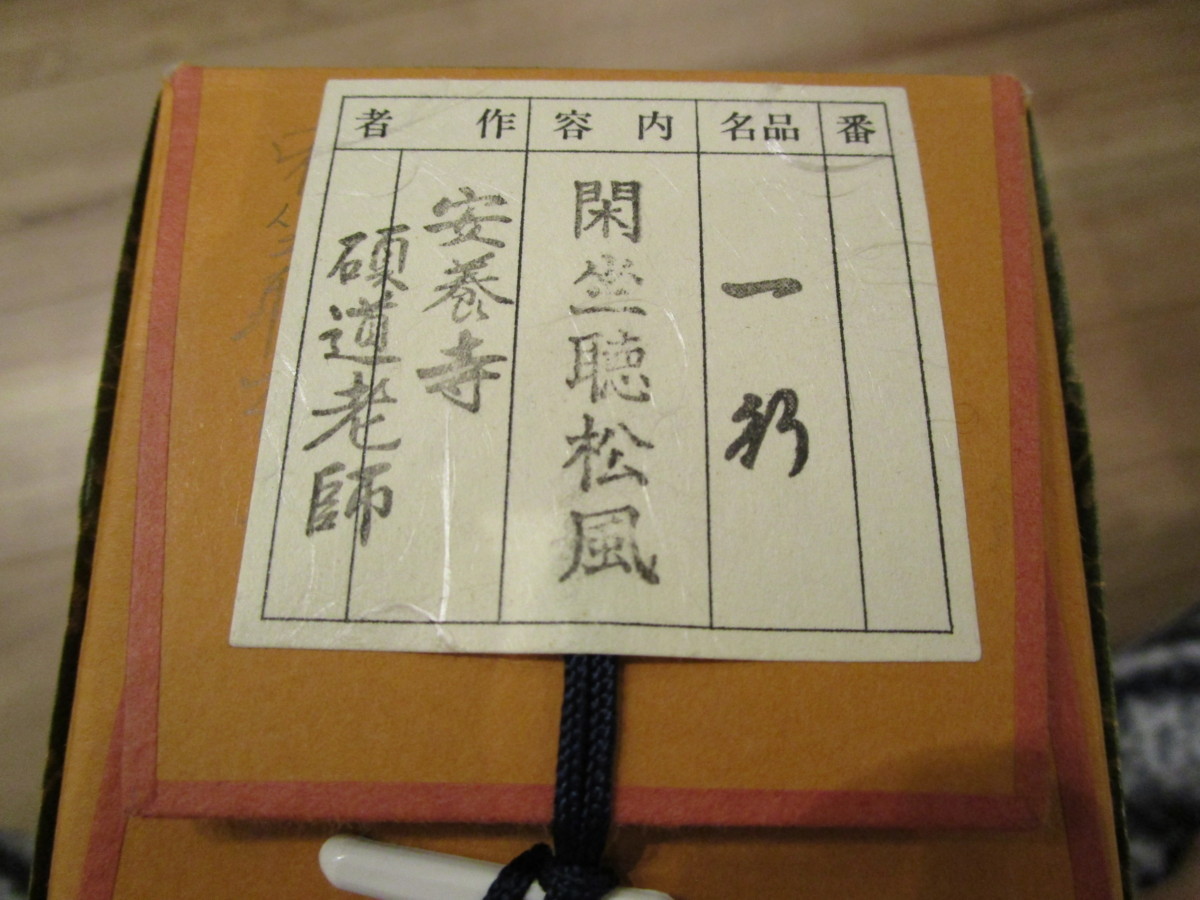 番
品名
一行
内容
閑坐聴松風
作者
安養寺
碩道老師